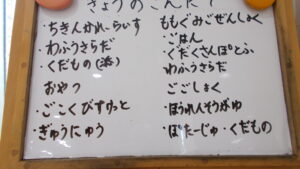 きょうのこんだて
・ちきんかれーらいす
・わふうさらだ
・くだもの(添)
おやつ
・ごこくびすけっと
・ぎゅうにゅう
ももぐみごぜんしょく
・ごはん
・ぐだくさんぽとふ
わふうさらだ
ごごしょく
・ほうれんそうがゆ
・ぽたーじゅ・くだもの